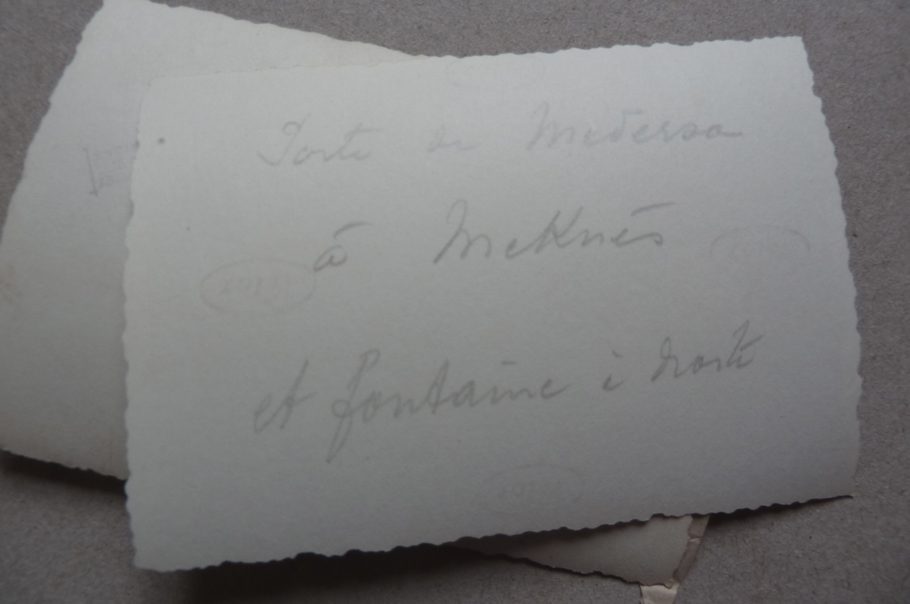 Porte de Medersa
à Meknès
et fontaine à droite